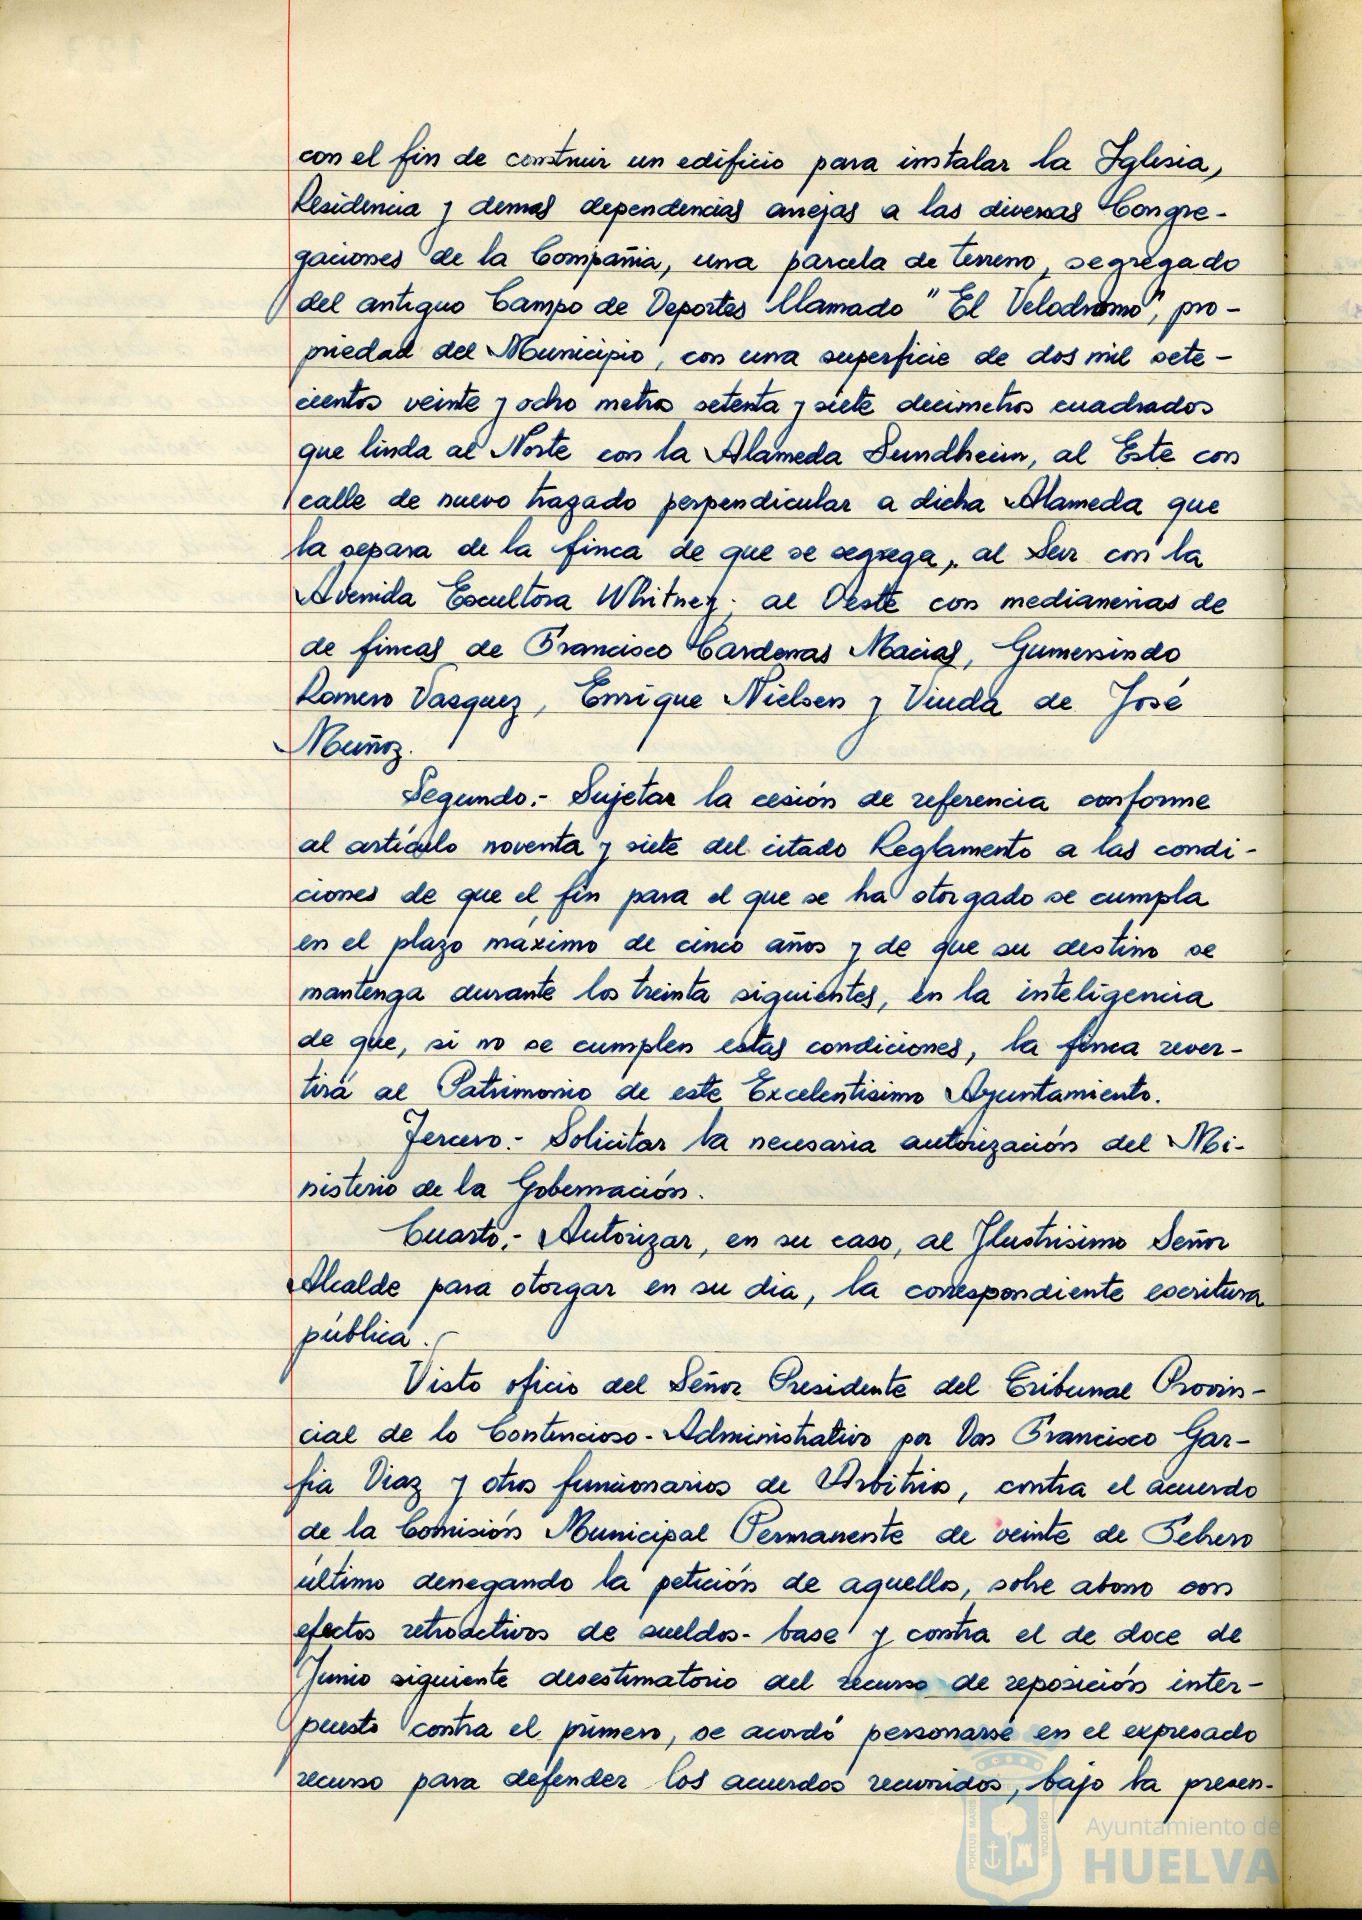 con el fin de construir un edificio para instalar la Iglesia,
Residencia y demas dependencias anejas a las diversas Congre-
gaciones de la Compañia, una parcela de terreno, segregado
del antiguo Campo de Deportes llamado "El Velodromo", pro-
piedad del Municipio, con una superficie de dos mil sete-
cientos veinte y ocho metros setenta y siete decimetros cuadrados
que linda al Norte con la Alameda Sundheim, al Este con
calle de nuevo trazado perpendicular a dicha Alameda que
la separa de la finca de que se segrega, al Sur con la
Avenida Escultora Whitney; al Oeste con medianerias de
de fincas de Francisco Cardenas Macias, Gumersindo
Romero Vasquez, Enrique Nielsen y Viuda de José
Muñoz.
Segundo.- Sujetar la cesión de referencia conforme
al artículo noventa y siete del citado Reglamento a las condi-
ciones de que el fin para el que se ha otorgado se cumpla
en el plazo máximo de cinco años y de que su destino se
mantenga durante los treinta siguientes, en la inteligencia
de que, si no se cumplen estas condiciones, la finca rever-
tirá al Patrimonio de este Excelentisimo Ayuntamiento.
Tercero.- Solicitar la necesaria autorización del Mi-
nisterio de la Gobernación.
Cuarto.- Autorizar, en su caso, al Ilustrisimo Señor
Alcalde para otorgar en su dia, la correspondiente escritura
pública.
Visto oficio del Señor Presidente del Tribunal Provin-
cial de lo Contencioso-Administrativo por Don Francisco Gar-
fia Diaz y otros funcionarios de Arbitrios, contra el acuerdo
de la Comisión Municipal Permanente de veinte de Febrero
último denegando la petición de aquellos, sobre abono con
efectos retroactivos de sueldos-base y contra el de doce de
Junio siguiente desestimatorio del recurso de reposición inter-
puesto contra el primero, se acordó personarse en el expresado
recurso para defender los acuerdos recurridos, bajo la presen-
PORTUS MARIS
CUSTODIA
Ayuntamiento de
HUELVA